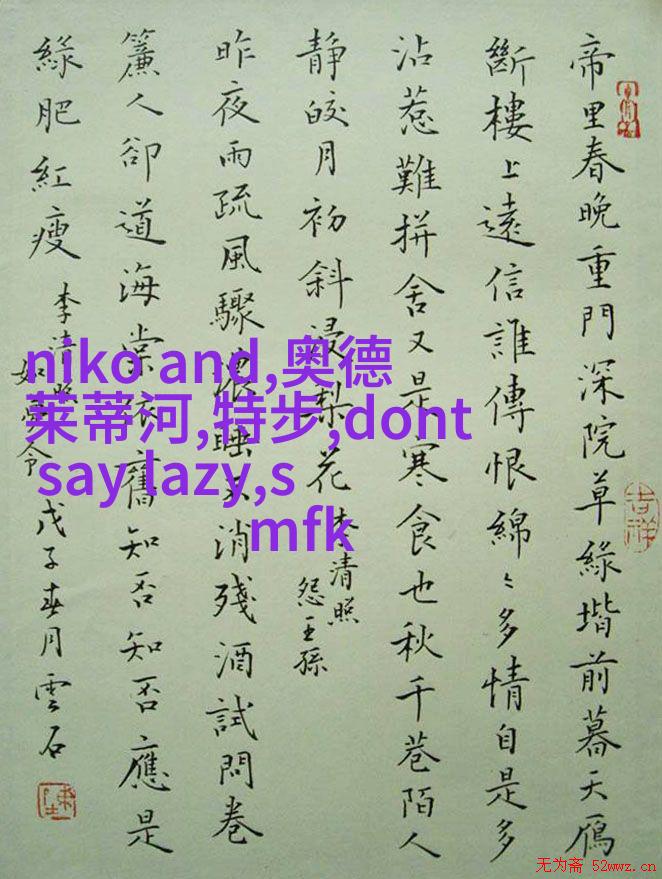 帝里春晚重門深院草緑堦前暮天鴈
斷樓上遠信誰傳恨綿〻多情自是多
沾惹難拼舍又是寒食也秋千巷陌人
静皎月初斜浸梨花
李清照
怨王孫
昨夜雨疏風驟濃睡不消殘酒試問卷
簾人卻道海棠依舊知否知否應是
緑肥紅瘦
李清照
如夢令
戊子春月雲石
吉祥
niko and,奥德
莱蒂河,特步,dont
say lazy,s
mfk
无为斋 52wwz.cn